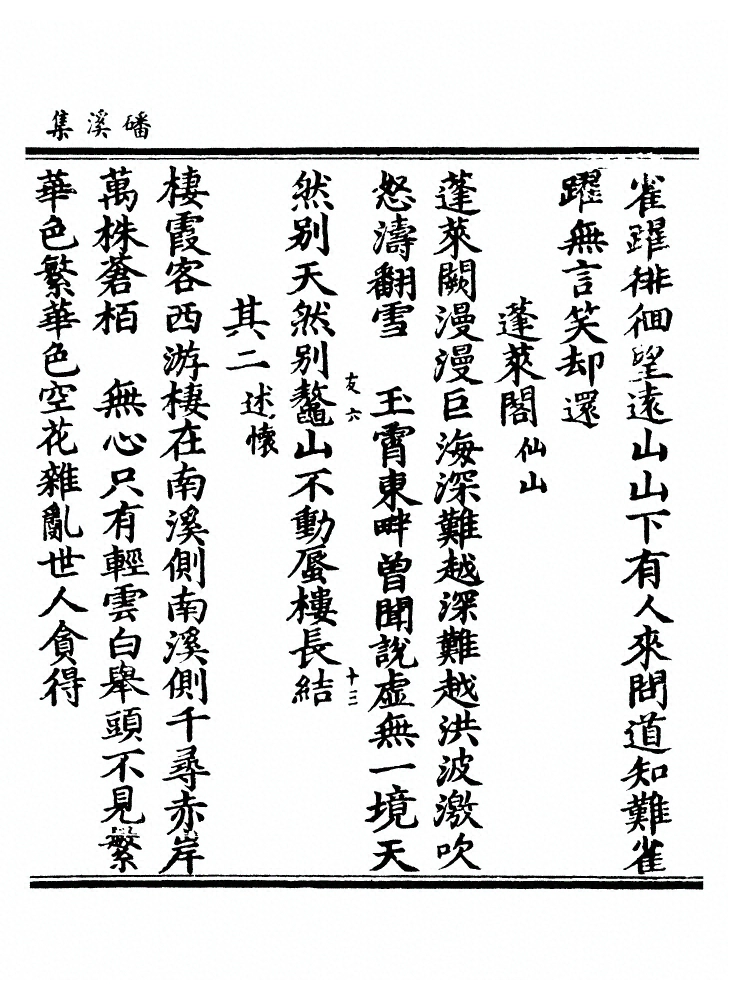 磻溪集
雀躍徘徊望遠山山下有人來問道知難雀
躍無言笑却還
蓬萊閣仙山
蓬萊闕漫漫巨海深難越深難越洪波激吹
怒濤翻雪　玉霄東畔曾聞說虛無一境天
然別天然別鼇山不動蜃樓長結
友六
十三
其二述懷
棲霞客西游棲在南溪側南溪側千尋赤岸
萬株蒼栢　無心只有輕雲白舉頭不見繁
華色繁華色空花雜亂世人貪得